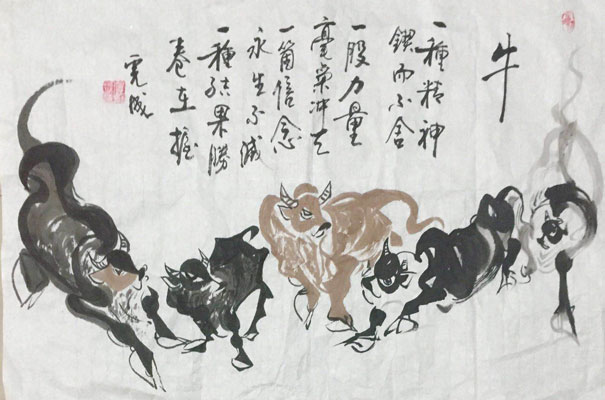 牛
一種精神
鍥而不舍
一股力量
冲天
一箇信念
永生不滅
一種結果勝
券在握